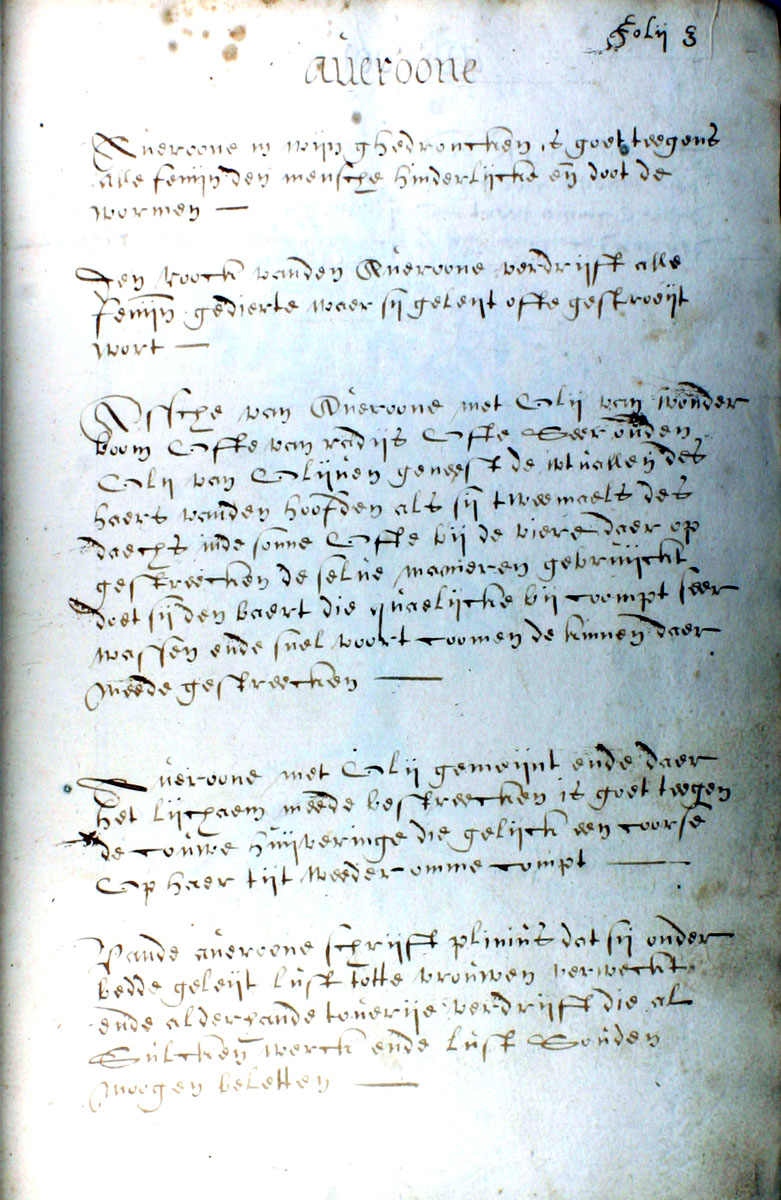 Folii 3
aûeroone
Aûeroone in wijn ghedroncken is goet teegens
alle femijn den mensche hinderlijcke en̄ doot de
wormen —
Den roock vanden Aûeroone verdrijft alle
femijn gedierte waer sij geleijt ofte gestroeijt
wort —
Assche van Aûeroone met Olij van wonder
boom Ofte van radijs Ofte Seer oûden
Olij van Olijûen geneest de wtûallen des
haers vanden hoofden als sij tweemaels des
daechs inde sonne Ofte bij de viere daer op
gestreecken de selûe manieren gebrûijckt
doet sij den baert die qûaelijcke bij coompt seer
wassen ende snel voort coomen de kinnen daer
meede gestreecken —
Aûeroone met Olij gemeijnt ende daer
het lijchaem meede bestreecken is goet teegen
de coûwe hûijveringe die gelijck een coorse
Op haer tijt weeder omme compt —
Vande aûeroone schrijft plinius dat sij onder
bedde geleijt lûst totte vroûwen verweckt
ende alderhande toûerije verdrijft die al
Sûlcken werck ende lûst Soûden
moogen beletten —